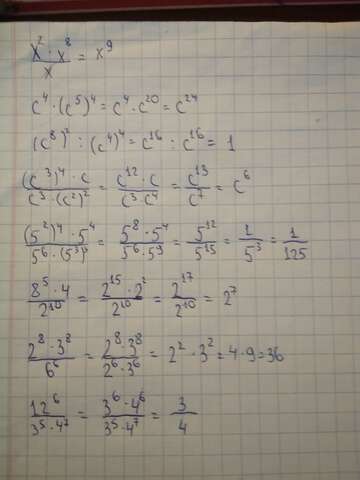 (x² · x⁸)/x = x⁹
c⁴ · (c⁵)⁴ = c⁴ · c²⁰ = c²⁴
(c⁸)² : (c⁴)⁴ = c¹⁶ : c¹⁶ = 1
((c³)⁴ · c)/(c³ · (c²)²) = (c¹² · c)/(c³ · c⁴) = c¹³/c⁷ = c⁶
((5²)⁴ · 5⁴)/(5⁶ · (5³)³) = (5⁸ · 5⁴)/(5⁶ · 5⁹) = 5¹²/5¹⁵ = 1/5³ = 1/125
(8⁵ · 4)/2¹⁰ = (2¹⁵ · 2²)/2¹⁰ = 2¹⁷/2¹⁰ = 2⁷
(2⁸ · 3⁸)/6⁶ = (2⁸ · 3⁸)/(2⁶ · 3⁶) = 2² · 3² = 4 · 9 = 36
12⁶/(3⁵ · 4⁷) = (3⁶ · 4⁶)/(3⁵ · 4⁷) = 3/4